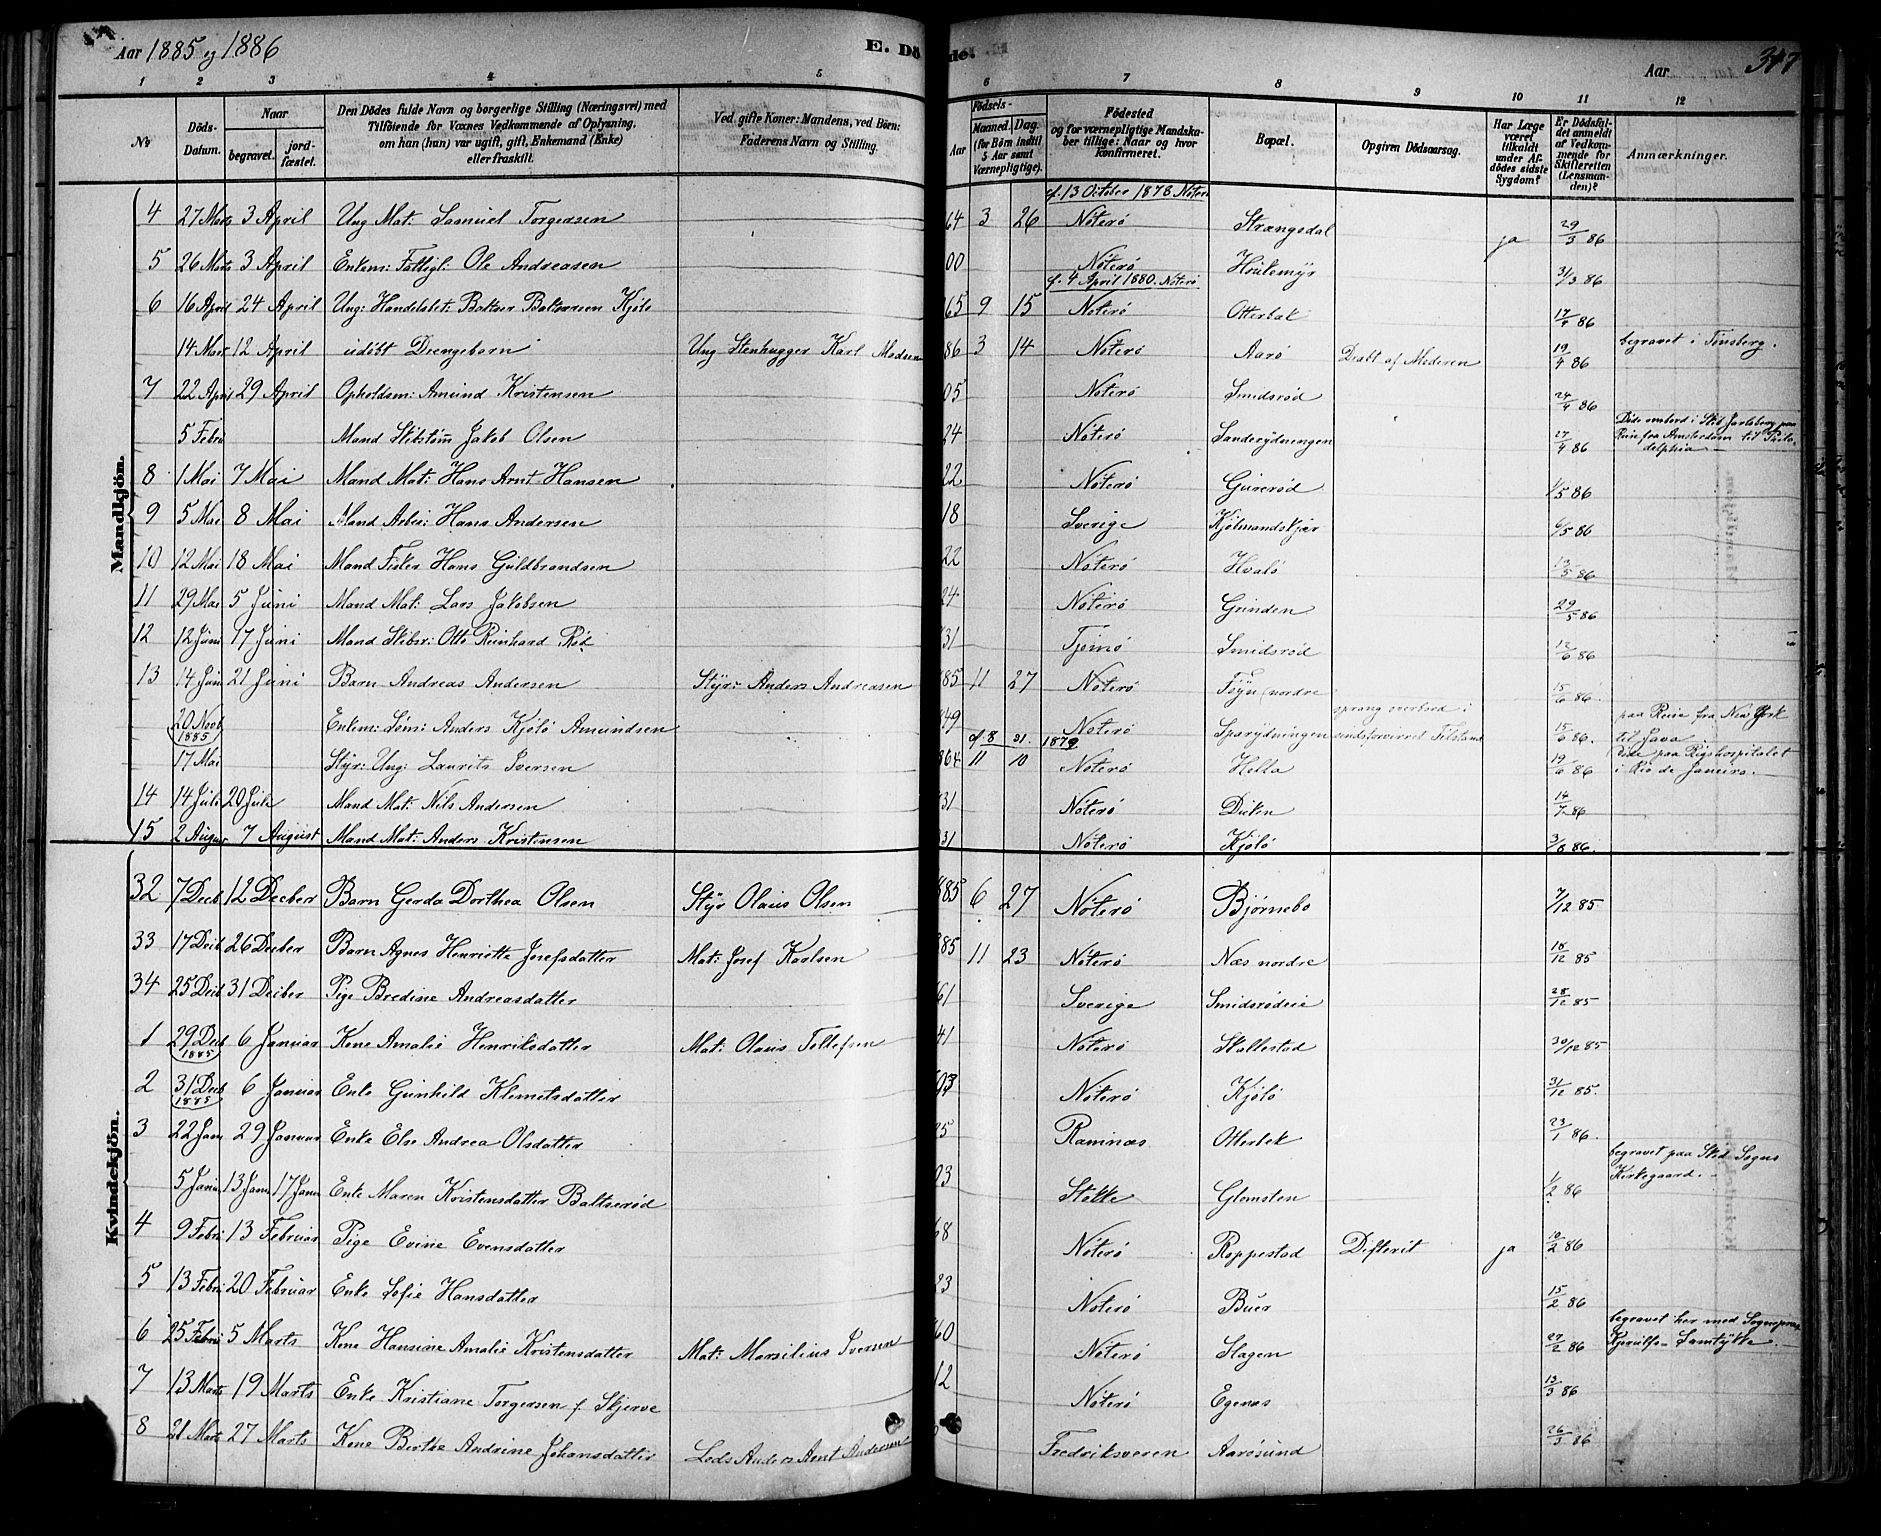 Aar 1885 og 1886
E. Döde.
Aar
347
1 2 3 4 5 6 7 8 9 10 11 12
No
Döds-Datum.
Naar begravet. jordfæstet.
Den Dödes fulde Navn og borgerlige Stilling (Næringsvei) med Tilföiende for Voxnes Vedkommende af Oplysning, om han (hun) var ugift, gift, Enkemand (Enke) eller fraskilt.
Ved gifte Koner: Mandens, ved Börn: Faderens Navn og Stilling.
Födsels- Aar Maaned. Dag. (for Börn indtil 5 Aar samt Værnepligtige).
Födested og for værnepligtige Mandskaber tillige: Naar og hvor konfirmeret.
Bopæl.
Opgiven Dödsaarsag.
Har Læge været tilkaldt under Afdödes sidste Sygdom?
Er Dödsfaldet anmeldt af Vedkommende for Skifteretten (Lensmanden)?
Anmærkninger.
Mandkjön.
c. 13 October 1878 Nøterø
4 27 Marts 3 April Ung Mat: Samuel Torgersen 64 3 26 Nøterø Strengsdal ja 29/3 86
5 26 Marts 3 April Enkem: Fattigl: Ole Andreasen 00 Nøterø Houkemyr 31/3 86
c. 4 April 1880. Nøterø
6 16 April 24 April Ung: Handelsbet: Baltser Baltsersen Kjølø 65 9 15 Nøterø Otterbæk 17/4 86
14 Mar 12 April udöbt Drengebarn Ung Stenhugger Karl Madsen 86 3 14 Nøterø Aarø Dræbt af Moderen 19/4 86 begravet i Tönsberg.
7 22 April 29 April Opholdsm: Amund Kristensen 05 Nøterø Smidsrød 24/4 86
5 Febru Mand Skibstöm Jakob Olsen 24 Nøterø Sanderydningen 27/4 86 Döde ombord i Skb Jarlsberg paa Reise fra Amsterdam til Philadelphia
8 1 Mai 7 Mai Mand Mat: Hans Arnt Hansen 22 Nøterø Gurerød 1/5 86
9 5 Mai 8 Mai Mand Arbei: Hans Andersen 18 Sverige Kjölmandskjær 6/5 86
10 12 Mai 18 Mai Mand Fisker Hans Guldbrandsen 22 Nøterø Hvalø 13/5 86
11 29 Mai 5 Juni Mand Mat: Lars Jakobsen 24 Nøterø Grinden 29/5 86
12 12 Juni 17 Juni Mand Skibsr: Otto Reinhard Röd 31 Tjømø Smidsrød 12/6 86
13 14 Juni 21 Juni Barn Andreas Andersen Styr: Anders Andreasen 885 11 27 Nøterø Föyn nordre 15/6 86
20 Novb 1885 Enkem: Töm: Anders Kjölö Amundsen 849 Nøterø Sparydningen sprang overbord i sindsforvirret Tilstand 15/6 86. paa Reise fra New York til Java
c. 8 31. 1879
17 Mai Styr: Ung: Laurits Iversen 864 11 10 Nøterø Hella 19/6 86 Döde paa Rigshospitalet i Rio de Janeiro.
14 14 Juli 20 Juli Mand Mat: Nils Andersen 31 Nøterø Duken 14/7 86
15 2 August 7 August Mand Mat: Anders Kristensen 31 Nøterø Kjölö 3/8 86.
Kvindekjön.
32 7 Decb 12 Decber Barn Gerda Dorthea Olsen Styr Olaus Olsen 885 6 27 Nøterø Bjørnebo 7/12 85.
33 17 Decb 26 Decber Barn Agnes Henriette Josefsdatter Mat: Josef Karlsen 885 11 23 Nøterø Næs nordre 18/12 85
34 25 Decb 31 Decber Pige Bredine Andreasdatter 61 Sverige Smidsrødeie 28/12 85
1 29 Decb 1885 6 Januar Kone Amalie Henriksdatter Mat: Olaus Tollefsen 41 Nøterø Skallestad 30/12 85
2 31 Decb 1885 6 Januar Enke Gunhild Klemetsdatter 03 Nøterø Kjölö 31/12 85.
3 22 Jan 29 Januar Enke Else Andrea Olsdatter 25 Ramnæs Otterbek 23/1 86.
5 Janu 13 Janu 17 Janu Enke Maren Kristensdatter Baltserød 03 Stokke Glomsten 1/2 86 begravet paa Sted Sogns Kirkegaard.
4 9 Febru 13 Februar Pige Evine Evensdatter 68 Nøterø Roppestad Difterit ja 10/2 86
5 13 Febru 20 Februar Enke Sofie Hansdatter 23 Nøterø Buer 15/2 86
6 25 Febru 5 Marts Kone Hansine Amalie Kristensdatter Mat: Marsilius Iversen 60 Nøterø Slagen 27/2 86 begravet her med Sognepræst Samtykke.
7 13 Marts 19 Marts Enke Kristiane Torgersen f. Skjerve 12 Nøterø Egenæs 13/3 86
8 21 Marts 27 Marts Kone Berthe Andrine Johansdatter Lods Anders Arnt Andersen Fredriksværn Aarøsund 26/3 86